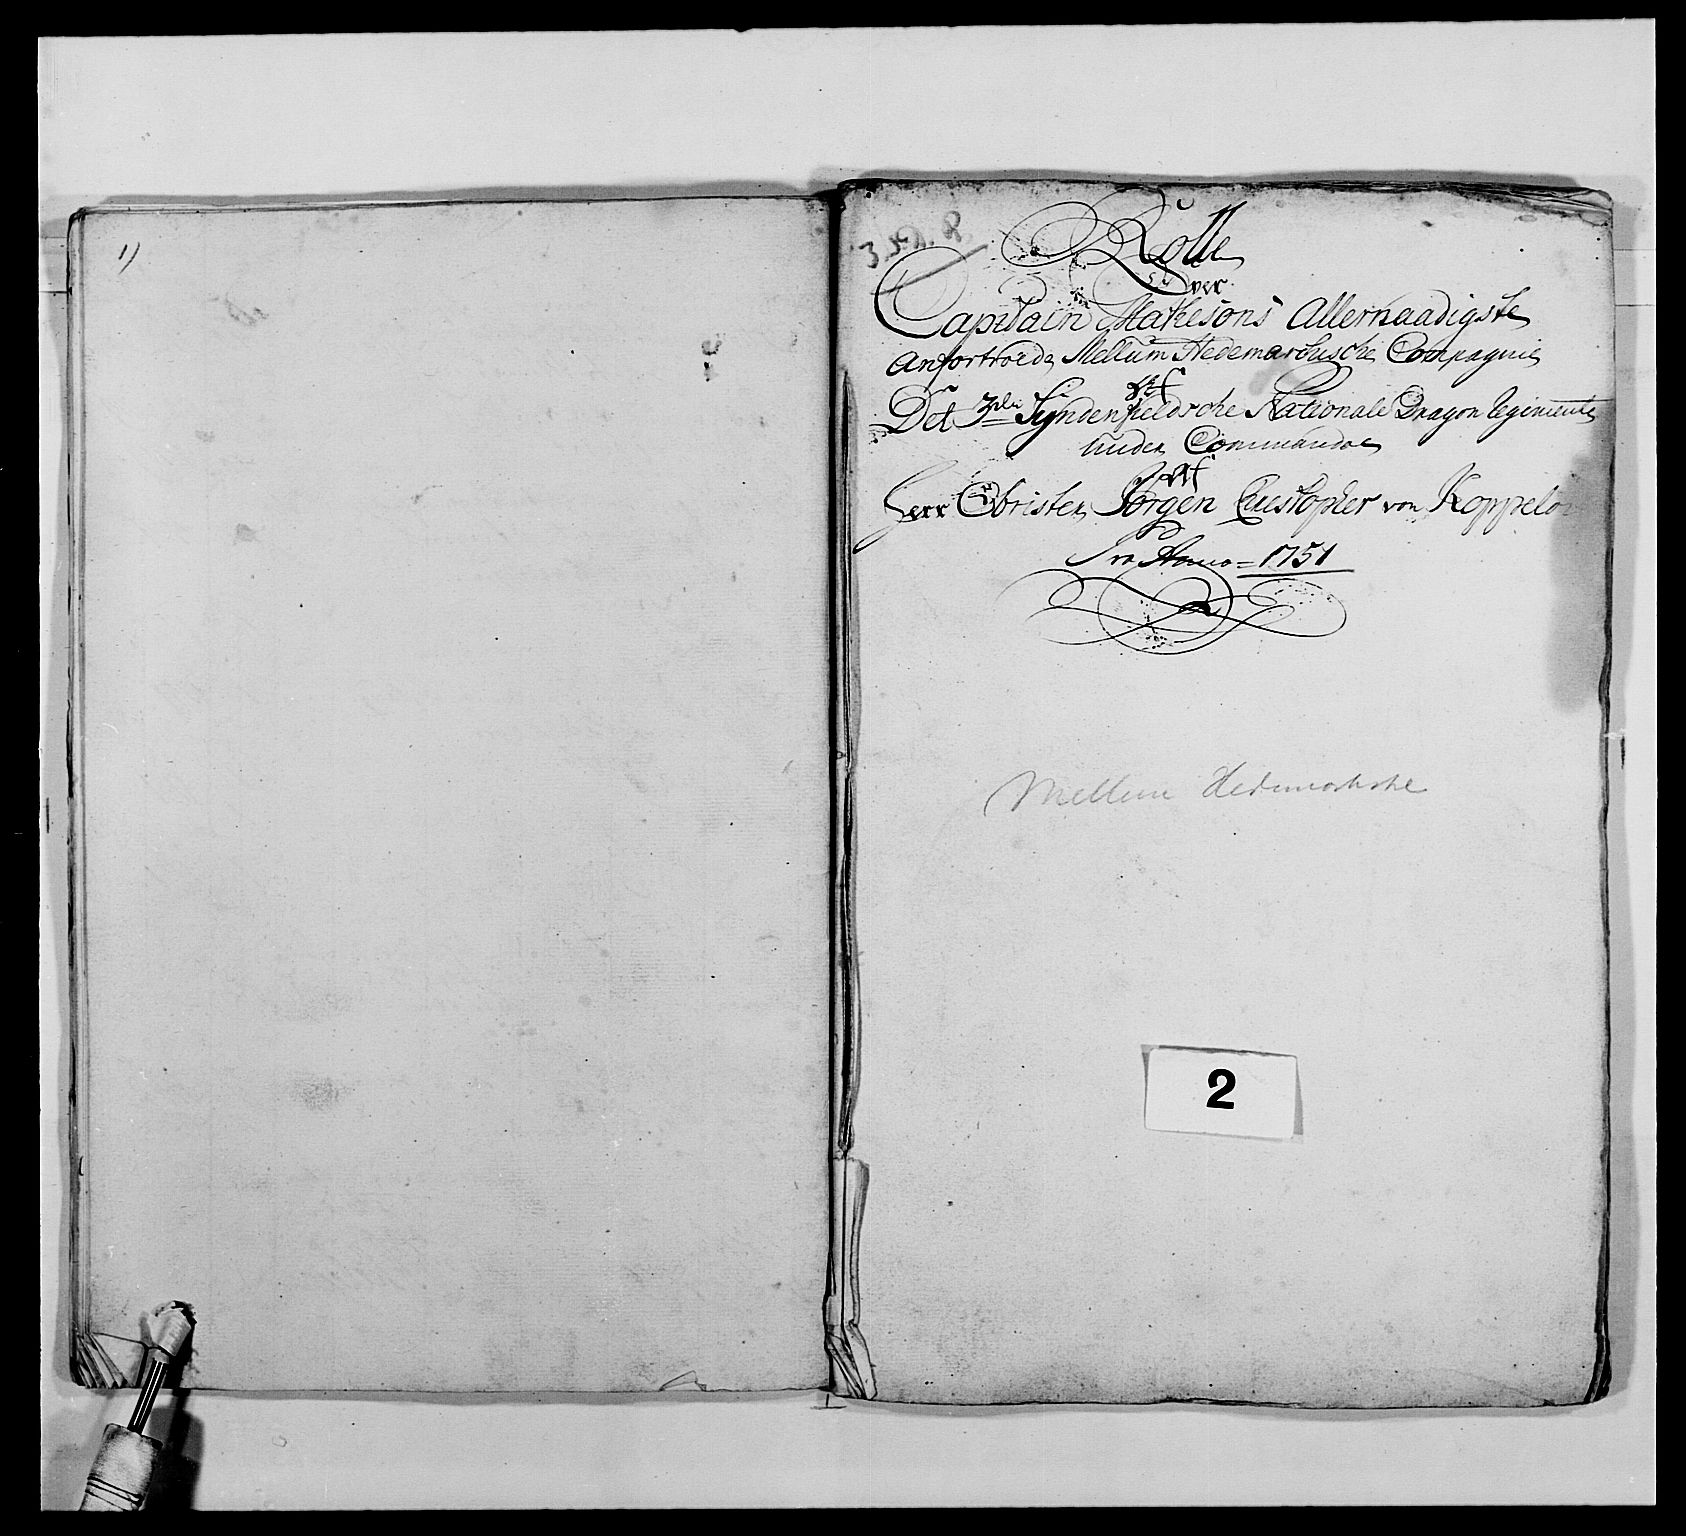 1)
3. S. D. R.
Rolle
over
Capitain Mathesons Allernaadigste
anfortroede Mellum Hedemarkische Compagnie
af
Det 3de Syndenfieldsche Nationale Dragon Regimente
under Commando
af
Herr Obrister Jørgen Christopher von Koppelo
Pro Anno = 1751
Mellem Hedemarkske
2